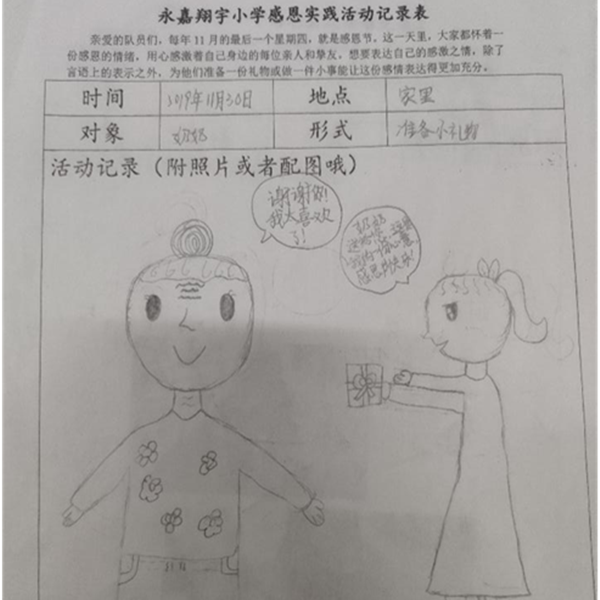 永嘉翔宇小学感恩实践活动记录表
亲爱的队员们，每年11月的最后一个星期四，就是感恩节，这一天里，大家都怀着一
份感恩的情绪，用心感激着自己身边的每位亲人和挚友，想要表达自己的感激之情，除了
言语上的表示之外，为他们准备一份礼物或做一件小事能让这份感情表达得更加充分。
时间 2019年11月30日 地点 家里
对象 奶奶 形式 准备小礼物
活动记录（附照片或者配图哦）
谢谢你!
我太喜欢
了!
奶奶
送给你，这是
我的一份心意
感恩节快乐!